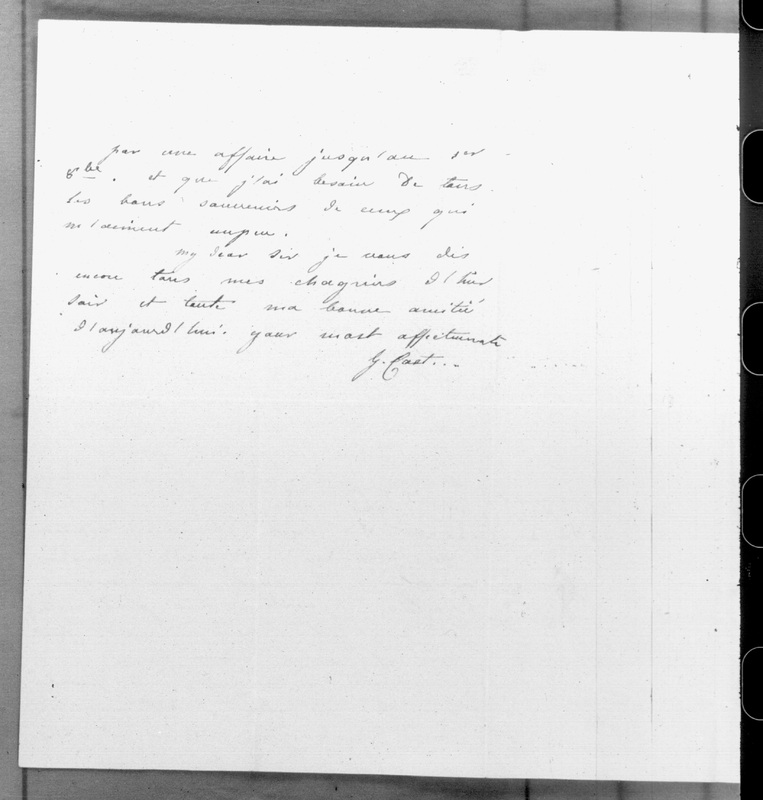 par une affaire jusqu'au 1er
8bre. et que j'ai besoin De tous
les bons souvenirs de ceux qui
m'aiment unpeu.
my dear sir je vous dis
encore tous mes chagrins d'hier
soir et toute ma bonne amitié
d'aujourd'hui. your most affectionate
G. Cast...